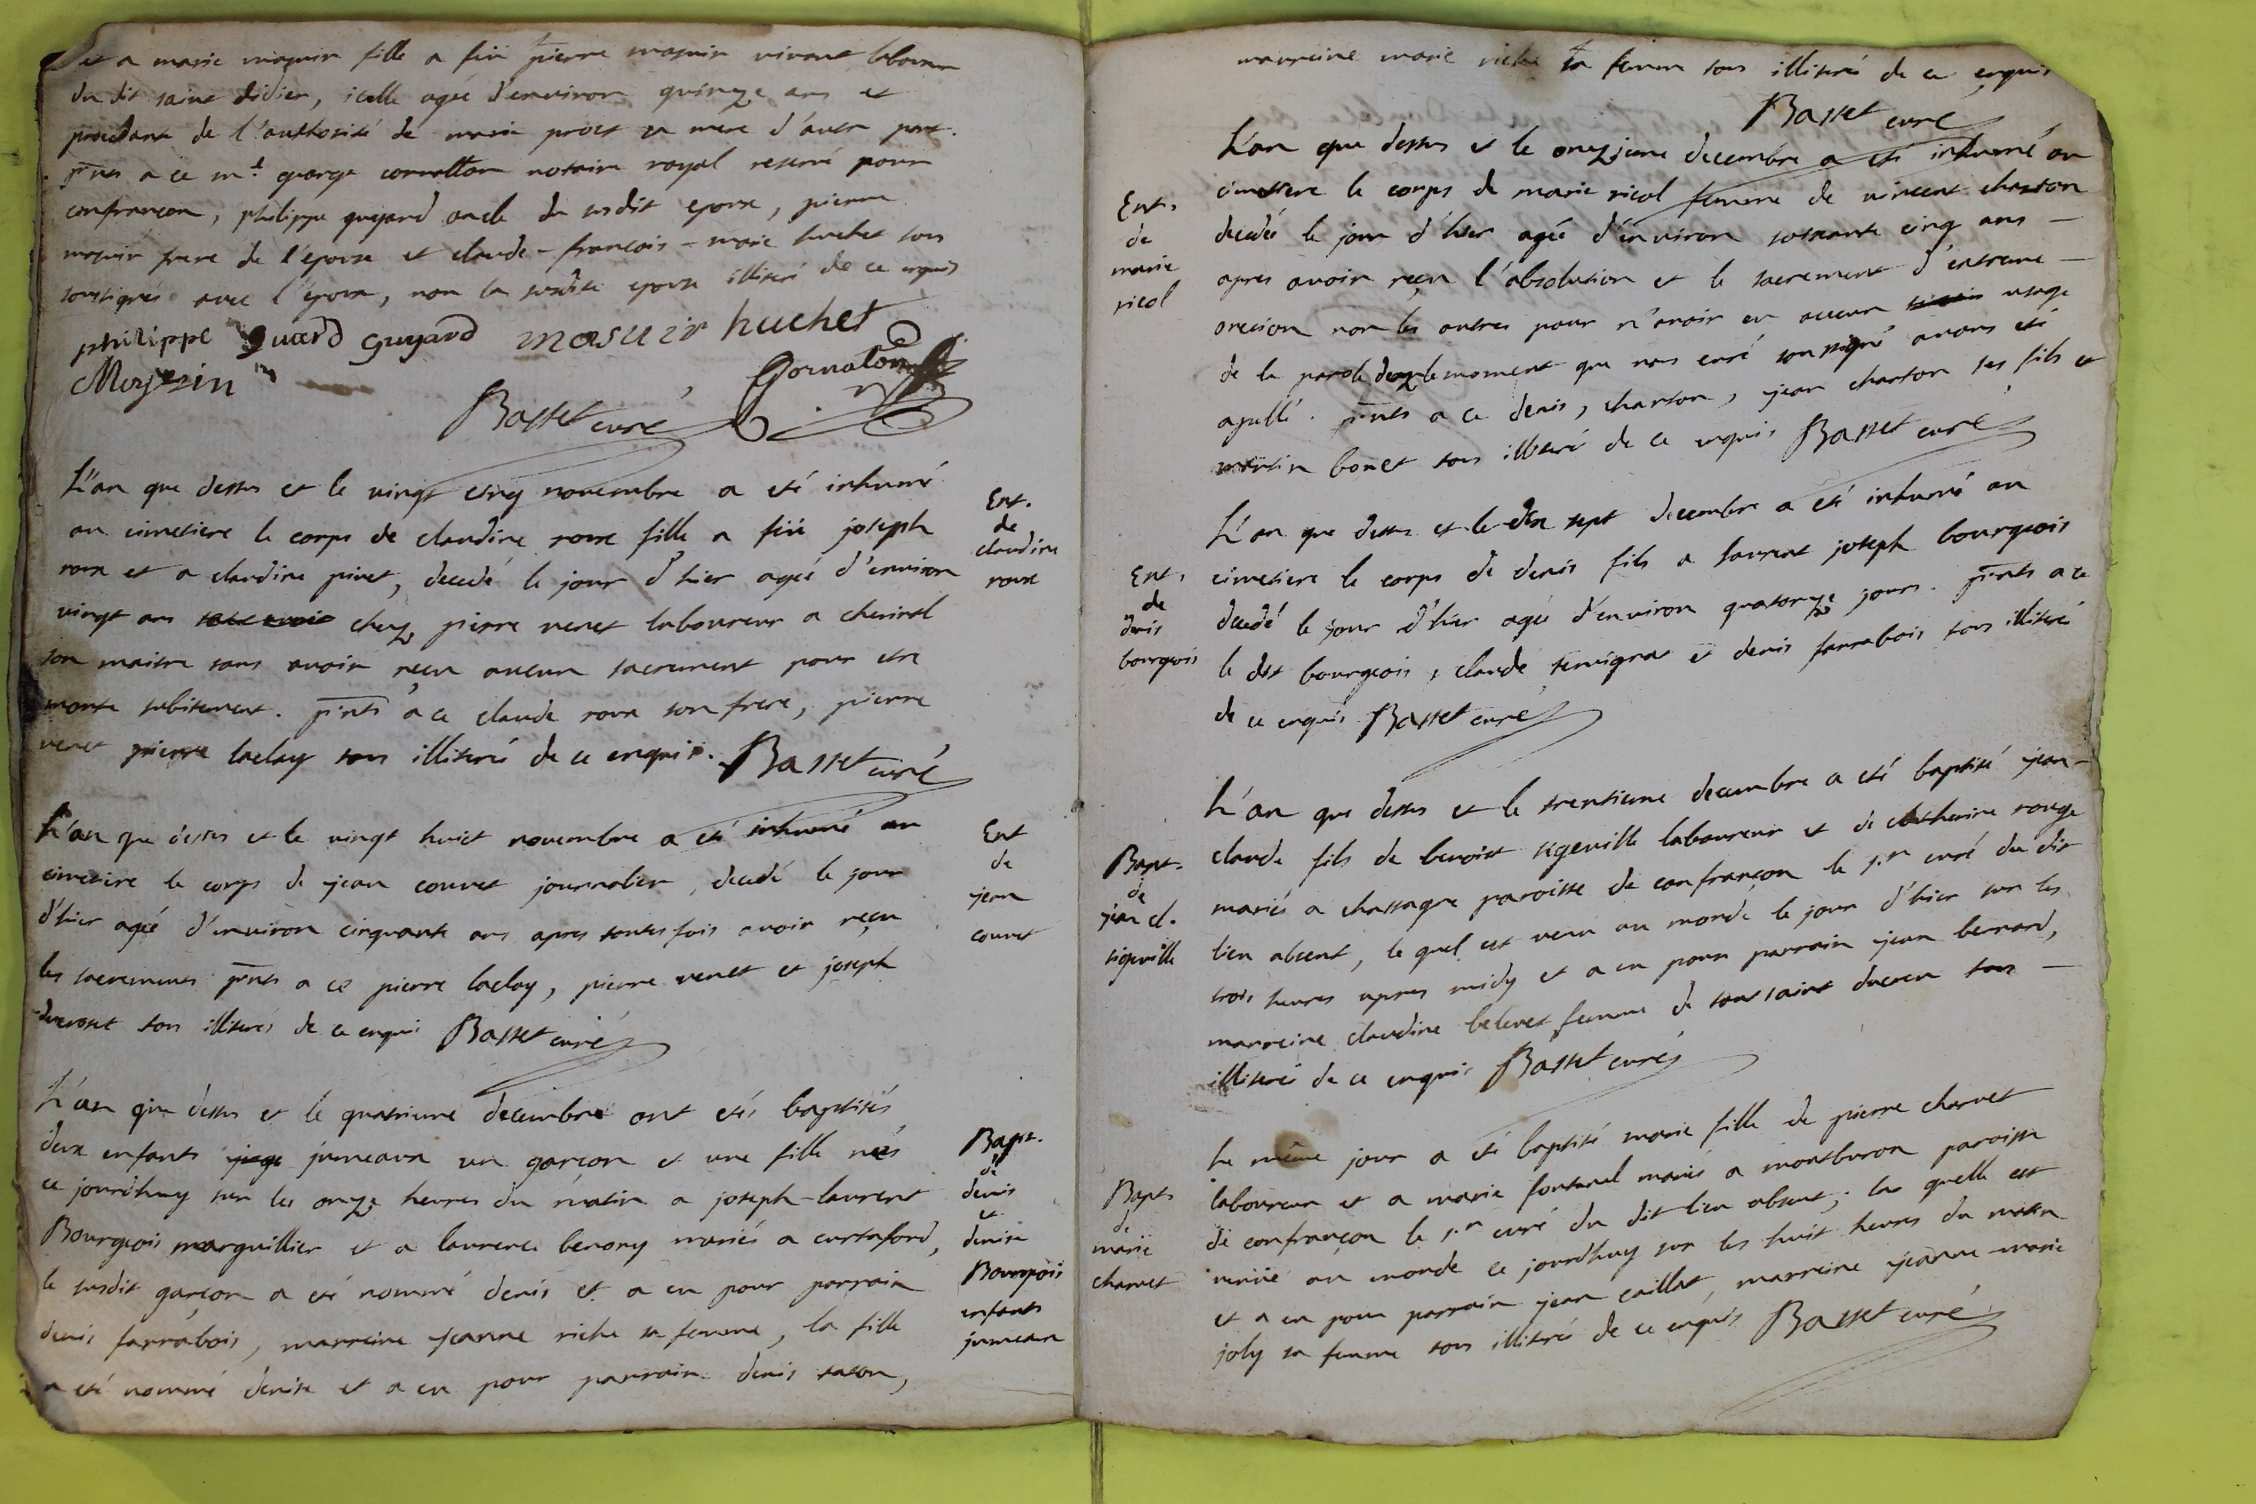 et a marie masuir fille a feü pierre masuir vivant laboureur
du dit saint didier, icelle agée d'environ quinze ans et
procedant de l'authorité de marie prost sa mere d'autre part.
pnts a ce mᵉ george cornaton notaire royal reservé pour
confrançon, philippe guyard oncle du susdit epoux, pierre
masuir frere de l'épouse et claude-françois-marie huchet tous
soussignés avec l'époux, non la susdite epouse illiteré de ce enquis
philippe guard guyard masuir huchet
Cornaton
Basset curé
L'an que dessus et le vingt cinq novembre a eté inhumé
au cimetiere le corps de claudine roux fille a feü joseph
roux et a claudine pivet, decedé le jour d'hier agée d'environ
vingt ans chez pierre venet laboureur a
son maitre sans avoir reçu aucun sacrement pour etre
morte subitement. pnts a ce claude roux son frere, pierre
venet pierre laclay tous illiterés de ce enquis. Basset curé
Ent.
de
claudine
roux
L'an que dessus et le vingt huict novembre a eté inhumé au
cimetiere le corps de jean couvet journalier, decedé le jour
d'hier agée d'environ cinquante ans apres toutesfois avoir reçu
les sacrements pnts a ce pierre laclay, pierre venet et joseph
tous illiterés de ce enquis Basset curé
Ent
de
jean
couvet
L'an que dessus et le quatrieme decembre ont etés baptisés
deux enfants jumeaux un garçon et une fille nés
ce jourdhuy sur les onze heures du matin a joseph-laurent
Bourgeois marguillier et a laurence benony mariés a curtafond,
le susdit garçon a eté nommé denis et a eu pour parrain
denis farrabois, marreine jeanne riche sa femme, la fille
a eté nommé denise et a eu pour parrain denis tason,
Bapt.
de
denis
et
denise
Bourgeois
enfants
jumeaux
marreine marie riche sa femme tous illiterés de ce enquis
Basset curé
L'an que dessus et le onzieme decembre a eté inhumé au
cimetiere le corps de marie nicol femme de vincent charton
decedée le jour d'hier agée d'environ soixante cinq ans -
apres avoir reçu l'absolution et le sacrement d'extreme -
onction non les autres pour n'avoir eu aucun usage
de la parole dez le moment que nous curé soussigné avons eté
apellé. pnts a ce denis, charton, jean charton ses fils et
martin bonet tous illiteré de ce enquis Basset curé
Ent.
de
marie
nicol
L'an que dessus et le dix sept decembre a eté inhumé au
cimetiere le corps de denis fils a laurent joseph bourgeois
decedé le jour d'hier agée d'environ quatorze jours. pnts a ce
le dit bourgeois, claude et denis farrabois tous illiterés
de ce enquis Basset curé
Ent.
de
denis
bourgeois
L'an que dessus et le trentieme decembre a eté baptisé jean-
claude fils de benoist sigeville laboureur et de catherine rouge
mariés a chassagne paroisse de confrançon le sr curé du dit
lieu absent, le quel est venu au monde le jour d'hier sur les
trois heures apres midy et a eu pour parrain jean bernard,
marreine claudine beluet femme de toussaint ducrou tous -
illiterés de ce enquis Basset curé
Bapt.
de
jean cl.
sigeville
Le même jour a eté baptisé marie fille de pierre charvet
laboureur et a marie fontanel mariés a montburon paroisse
de confrançon le sr curé du dit lieu absent, la quelle est
venüe au monde ce jourdhuy sur les huit heures du matin
et a eu pour parrain jean caillat, marreine jeanne-marie
joly sa femme tous illiterés de ce enquis Basset curé
Bapt.
de
marie
charvet